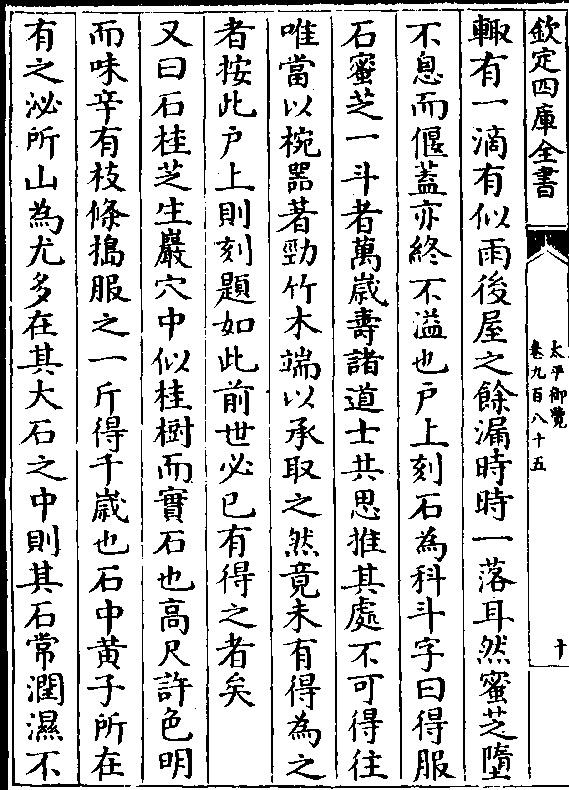 欽定四庫全書
太平御覽
卷九百八十五
十
輙有一滴有似雨後屋之餘漏時時一落耳然蜜芝墮
不息而偃蓋亦終不溢也户上刻石為科斗字曰得服
石蜜芝一斗者萬歲壽諸道士共思推其處不可得往
唯當以椀器著勁竹木端以承取之然竟未有得為之
者按此户上則刻題如此前世必已有得之者矣
又曰石桂芝生巖穴中似桂樹而實石也高尺許色明
而味辛有枝條搗服之一斤得千歲也石中黄子所在
有之泌所山為尤多在其大石之中則其石常潤濕不